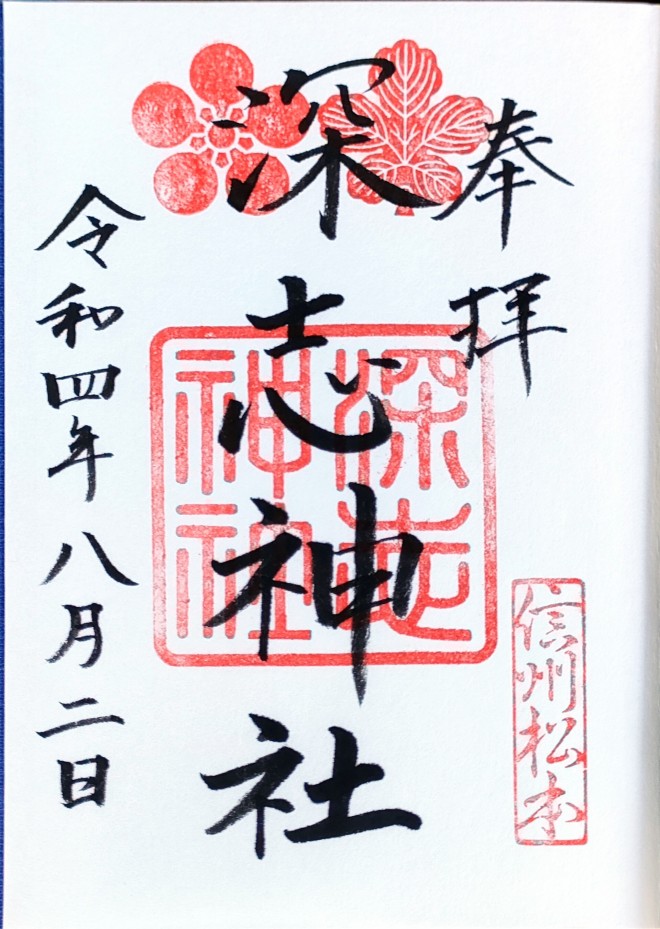 奉拝
深志神社
深志
神社
信州松本
令和四年八月二日